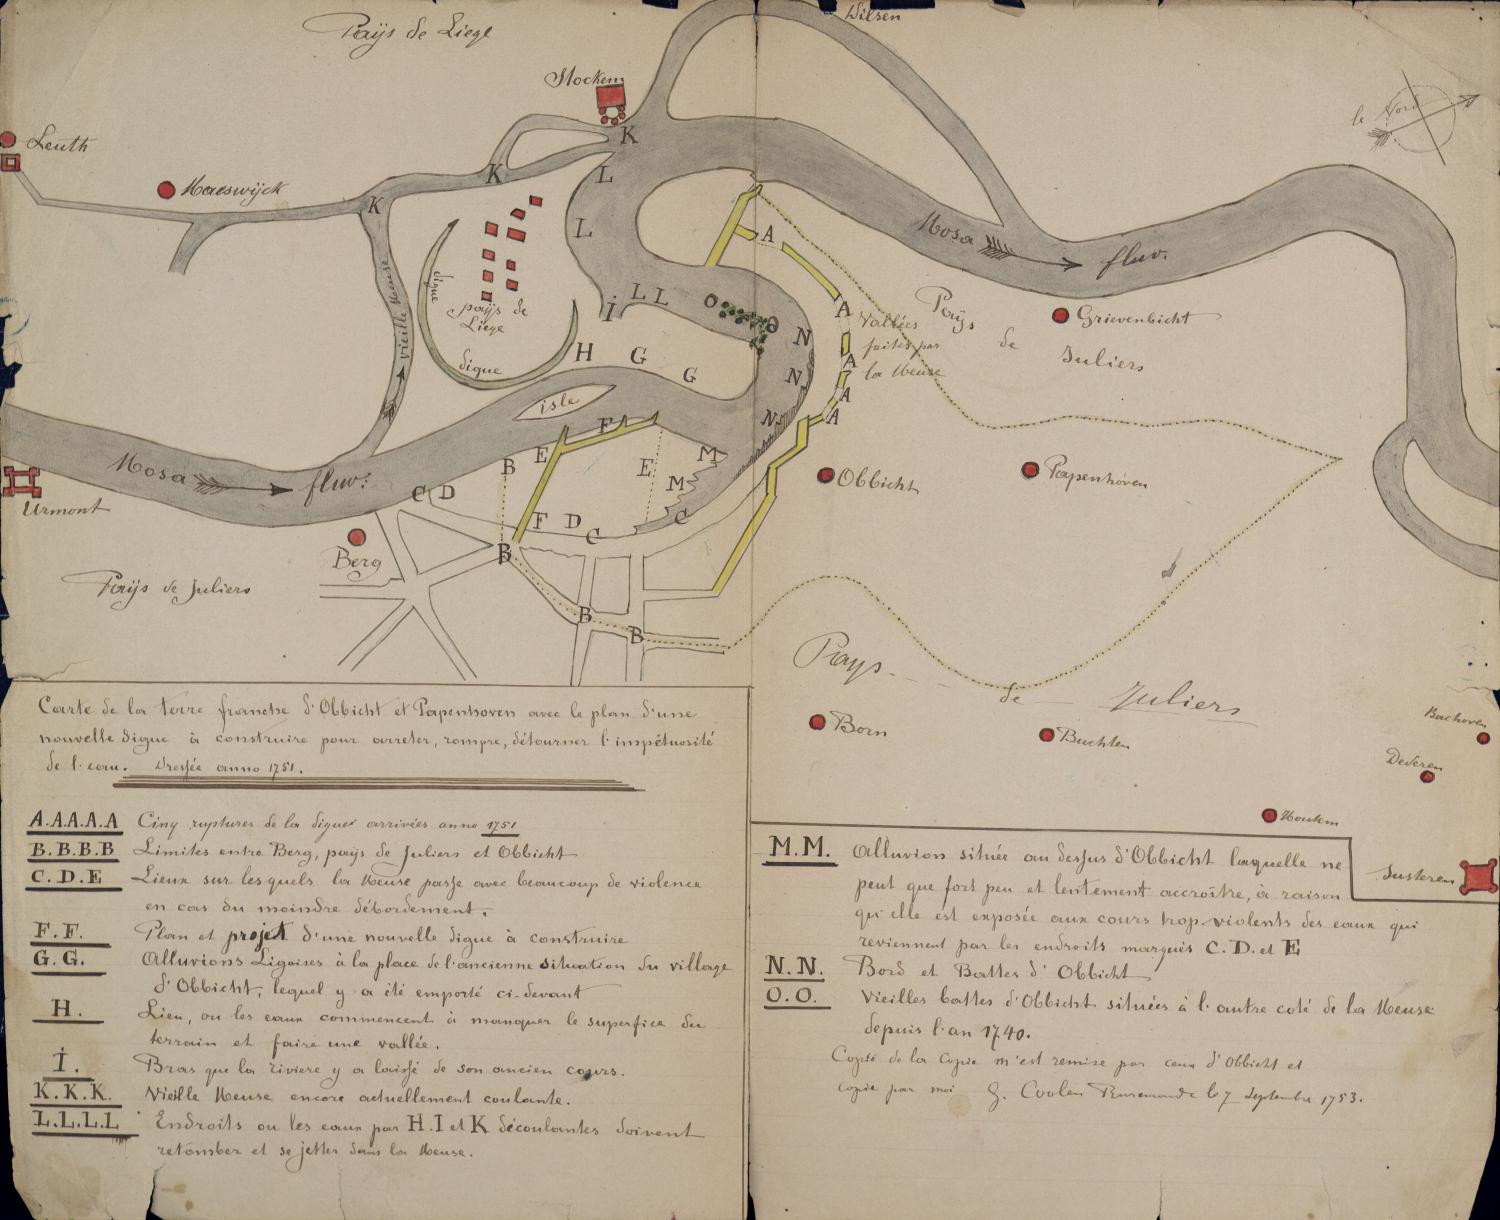 Paÿs de Liege
Dilsen
Stockem
le Nord
Leuth
Maeswijck
K
K
K
L
L
L L
I
vieille Meuse
digue
paÿs de
Liége
digue
H
G
G
O
O
N
N
N
A
A
A
A
A
Mosa
fluv.
Vallées
faites par
la Meuse
Paÿs
de
Juliers
Grievenbicht
isle
F
E
B
E
M
M
Mosa
fluv:
C D
F D
C
C
B
B
B
Urmont
Berg
Paÿs de Juliers
Obbicht
Papenhoven
Pays
de
Juliers
Born
Buchten
Bachoven
Deveren
Houtem
Susteren
Carte de la terre franche d'Obbicht et Papenhoven avec le plan d'une
nouvelle digue à construire pour arreter, rompre, détourner l'impétuosité
de l'eau. Dressée anno 1751.
A.A.A.A.A Cinq ruptures de la digue arrivées anno 1751
B.B.B.B Limites entre Berg, paÿs de Juliers et Obbicht
C.D.E Lieux sur lesquels la Meuse passe avec beaucoup de violence
en cas du moindre débordement.
F.F. Plan et projet d'une nouvelle digue à construire
G.G. Alluvions Ligoises à la place de l'ancienne situation du village
d'Obbicht, lequel y a été emporté ci-devant
H. Lieu, ou les eaux commencent à manquer le superfice du
terrain et faire une vallée.
I. Bras que la riviere y a laissé de son ancien cours.
K.K.K. Vieille Meuse encore actuellement coulante.
L.L.L.L Endroits ou les eaux par H.I et K découlantes doivent
retomber et se jetter dans la Meuse.
M.M. Alluvion située au dessus d'Obbicht laquelle ne
peut que fort peu et lentement accroître, à raison
qu'elle est exposée aux cours trop violents des eaux qui
reviennent par les endroits marqués C.D. et E
N.N. Bord et Battes d'Obbicht
O.O. Vieilles battes d'Obbicht situées à l'autre coté de la Meuse
depuis l'an 1740.
Copié de la Copie m'est remise par ceux d'Obbicht et
copié par moi G. Coolen Ruremonde le 7 Septembre 1753.